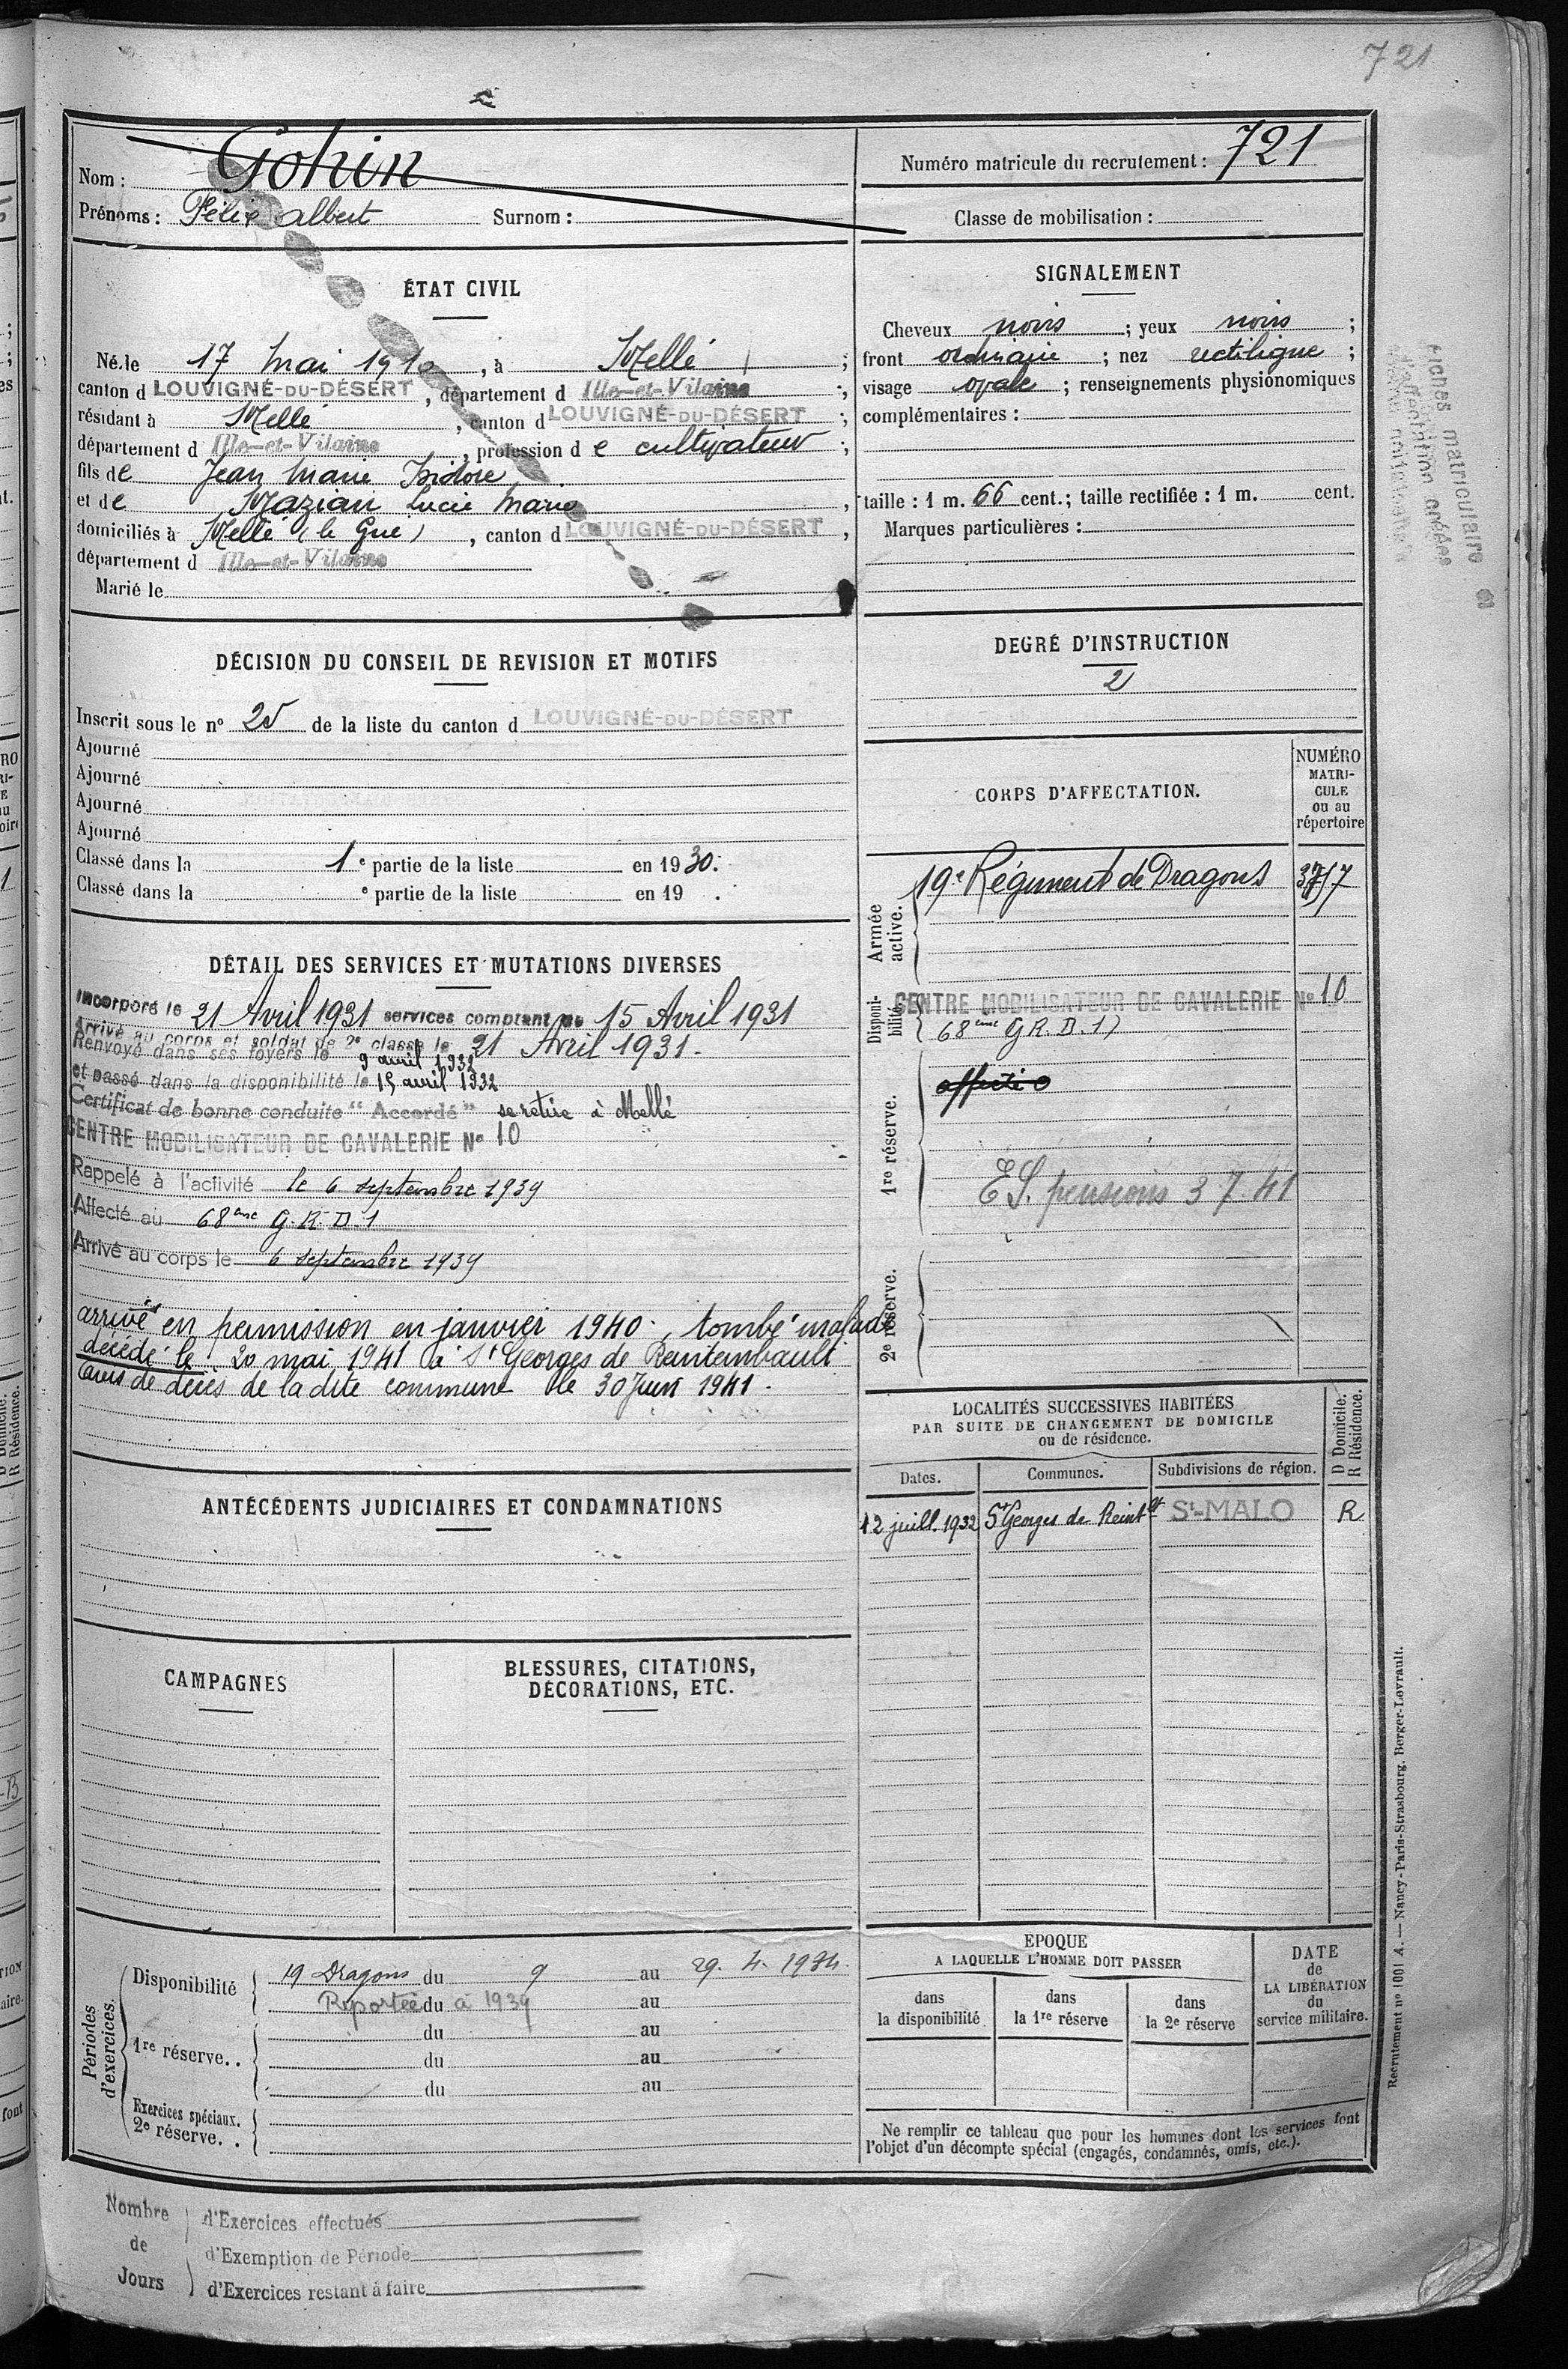 721
Nom : Gohin
Prénoms : Félix albert Surnom :
Numéro matricule du recrutement : 721
Classe de mobilisation :
ÉTAT CIVIL
Né le 17 mai 1910, à Mellé ;
canton d LOUVIGNÉ-DU-DÉSERT, département d Ille-et-Vilaine ;
résidant à Mellé, canton d LOUVIGNÉ-DU-DÉSERT ;
département d Ille-et-Vilaine, profession d e cultivateur ;
fils de Jean Marie Isidore
et de Mazian Lucie Marie,
domiciliés à Mellé (le Gué), canton d LOUVIGNÉ-DU-DÉSERT,
département d Ille-et-Vilaine
Marié le
SIGNALEMENT
Cheveux noirs ; yeux noirs ;
front ordinaire ; nez rectiligne ;
visage ovale ; renseignements physionomiques
complémentaires :
taille : 1 m. 66 cent. ; taille rectifiée : 1 m. cent.
Marques particulières :
DÉCISION DU CONSEIL DE REVISION ET MOTIFS
Inscrit sous le nº 25 de la liste du canton d LOUVIGNÉ-DU-DÉSERT
Ajourné
Ajourné
Ajourné
Ajourné
Classé dans la 1e partie de la liste en 1930.
Classé dans la e partie de la liste en 19 .
DEGRÉ D'INSTRUCTION
2
CORPS D'AFFECTATION.
NUMÉRO
MATRI-
CULE
ou au
répertoire
Armée active.
19e Régiment de Dragons
Disponi-
bilité.
CENTRE MOBILISATEUR DE CAVALERIE Nº 10
68ème G.R.D.I)
1re réserve.
affecté
E.S. pensions 3 7 41
2e réserve.
DÉTAIL DES SERVICES ET MUTATIONS DIVERSES
Incorporé le 21 Avril 1931 services comptant du 15 Avril 1931
Arrivé au corps et soldat de 2e classe le 21 Avril 1931.
Renvoyé dans ses foyers le 9 avril 1932
et passé dans la disponibilité le 15 avril 1932
Certificat de bonne conduite "Accordé" se retire à Mellé
CENTRE MOBILISATEUR DE CAVALERIE Nº 10
Rappelé à l'activité le 6 septembre 1939
Affecté au 68ème G.R.D.I
Arrivé au corps le 6 septembre 1939
arrivé en permission en janvier 1940, tombé malade
décédé le 20 mai 1941 à St Georges de Reintembault
(avis de décès de la dite commune le 30 Juin 1941.
LOCALITÉS SUCCESSIVES HABITÉES
PAR SUITE DE CHANGEMENT DE DOMICILE
ou de résidence.
D Domicile.
R Résidence.
Dates. Communes. Subdivisions de région.
12 juill. 1932 St Georges de Reint lt St-MALO R
ANTÉCÉDENTS JUDICIAIRES ET CONDAMNATIONS
CAMPAGNES
BLESSURES, CITATIONS,
DÉCORATIONS, ETC.
Périodes
d'exercices.
Disponibilité 19 Dragons du 9 au 29. 4. 1934.
Reportée du à 1939 au
1re réserve.. du au
du au
du au
Exercices spéciaux.
2e réserve. .
ÉPOQUE
A LAQUELLE L'HOMME DOIT PASSER
dans
la disponibilité
dans
la 1re réserve
dans
la 2e réserve
DATE
de
LA LIBÉRATION
du
service militaire.
Ne remplir ce tableau que pour les hommes dont les services font
l'objet d'un décompte spécial (engagés, condamnés, omis, etc.).
Recrutement nº 1001 A. — Nancy-Paris-Strasbourg, Berger-Levrault.
Nombre
de
Jours
d'Exercices effectués
d'Exemption de Période
d'Exercices restant à faire